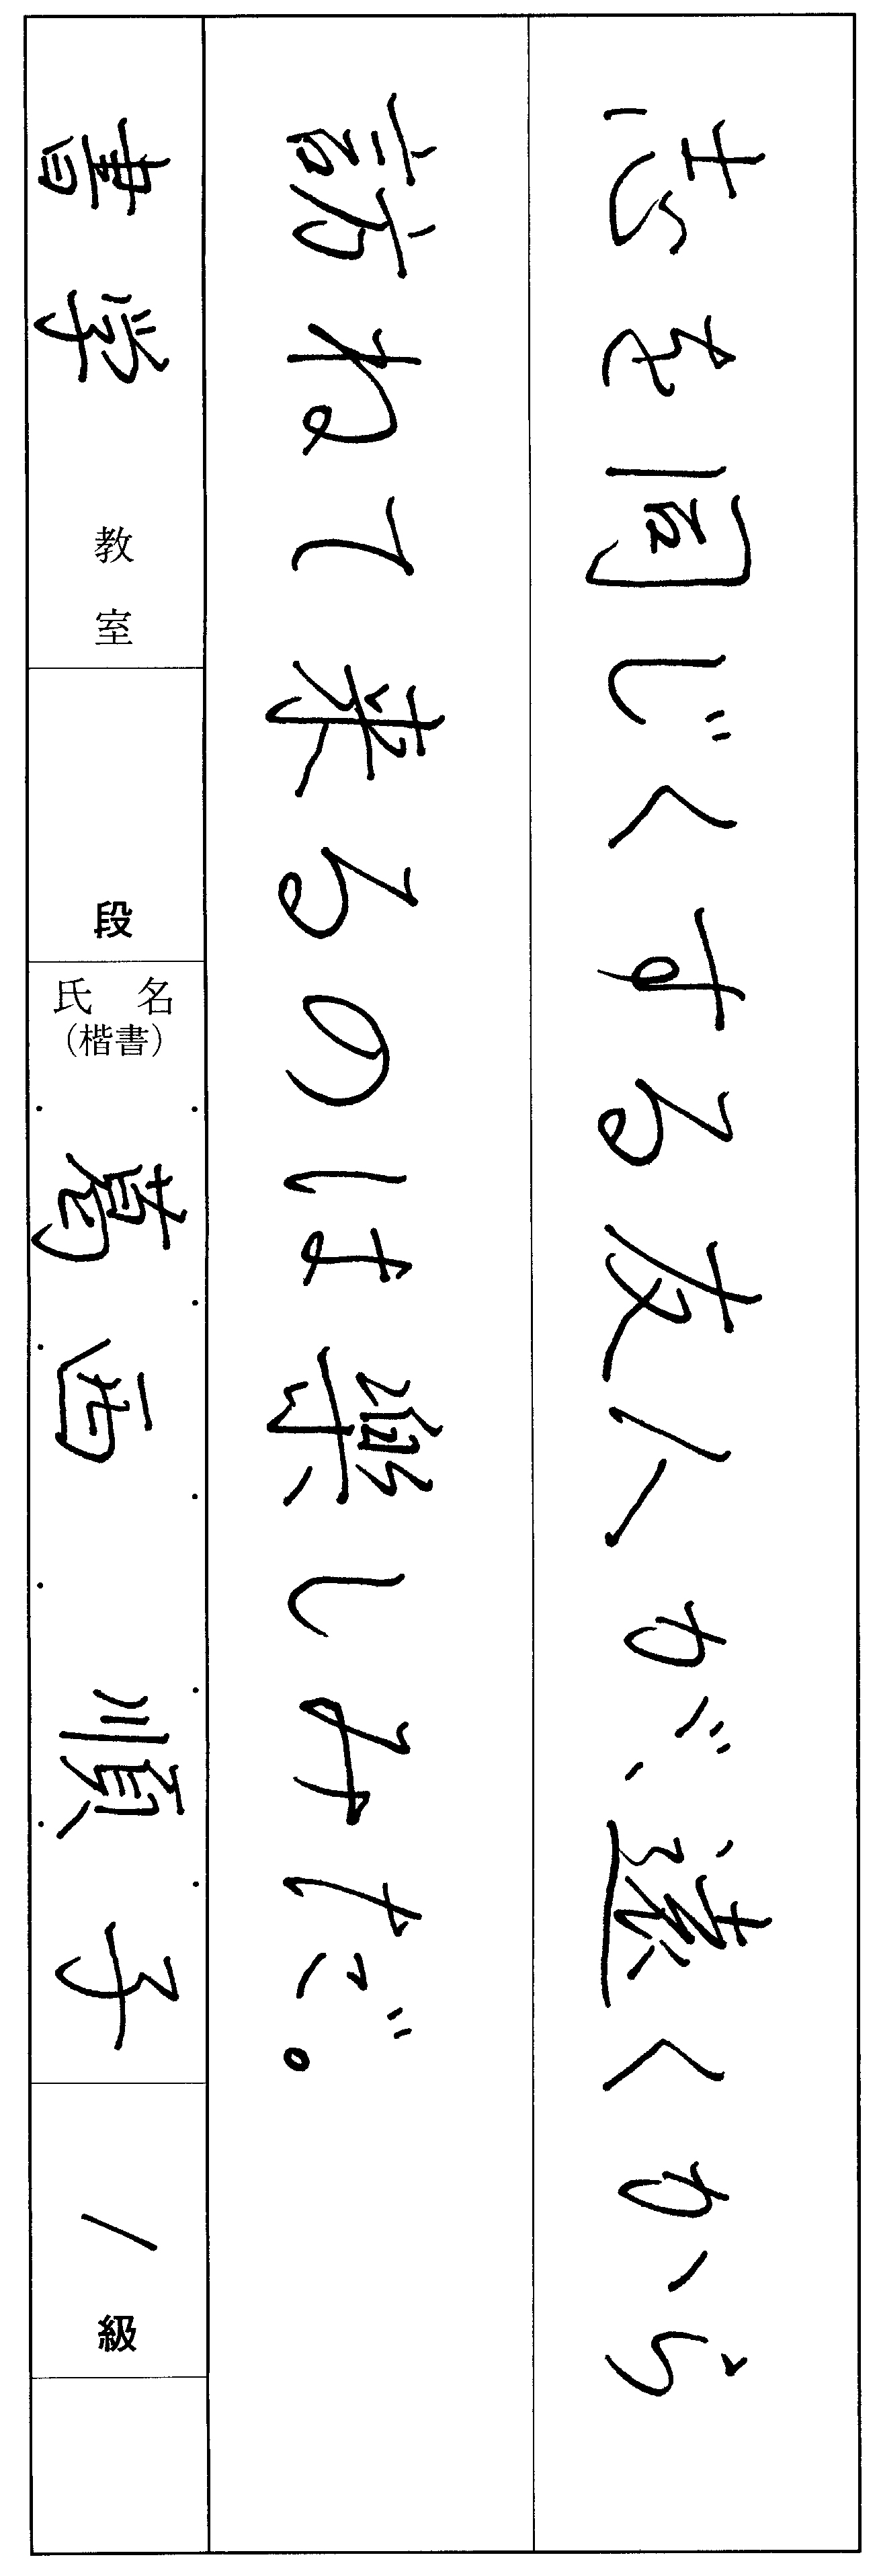 志を同じくする友人が、遠くから
訪ねて来るのは楽しみだ。
書学 教室
段
氏名
(楷書)
葛西 順子
1級